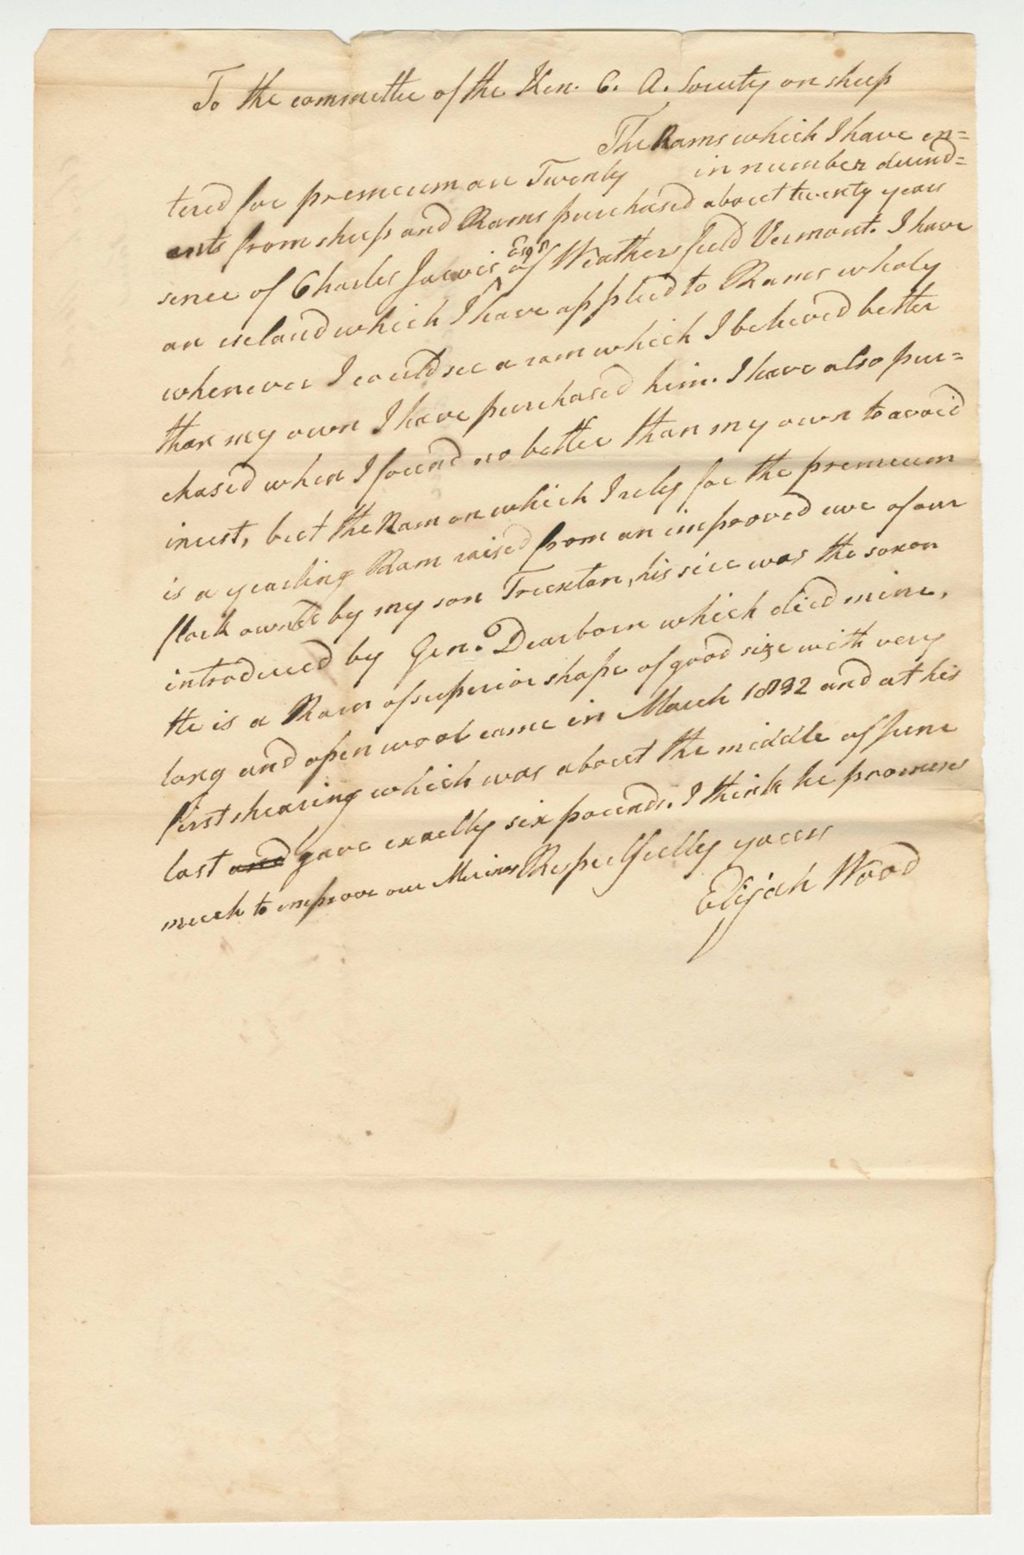 To the committee of the Ken. C. A. Society on sheep
The Rams which I have en=
tered for premeum are Twenty in number decend=
ents from sheep and Rams purchased about twenty years
sence of Charles Jarvis Esqr of Weathersfield Vermont. I have
an iseland which I have applied to Rams wholy
whenever I could see a ram which I believed better
than my own I have purchased him. I have also pur=
chased when I found no better than my own to avoid
incest, but the Ram on which I rely for the premeum
is a yearling Ram raised from an improved ewe of our
flock owned by my son Truxton, his sire was the saxon
introduced by Genо. Dearborn which died mine,
He is a Ram of superior shape of good size with very
long and open wool came in March 1832 and at his
first shearing which was about the middle of June
last and gave exactly six pounds. I think he promises
much to improve our Merinos Respectfully yours
Elijah Wood